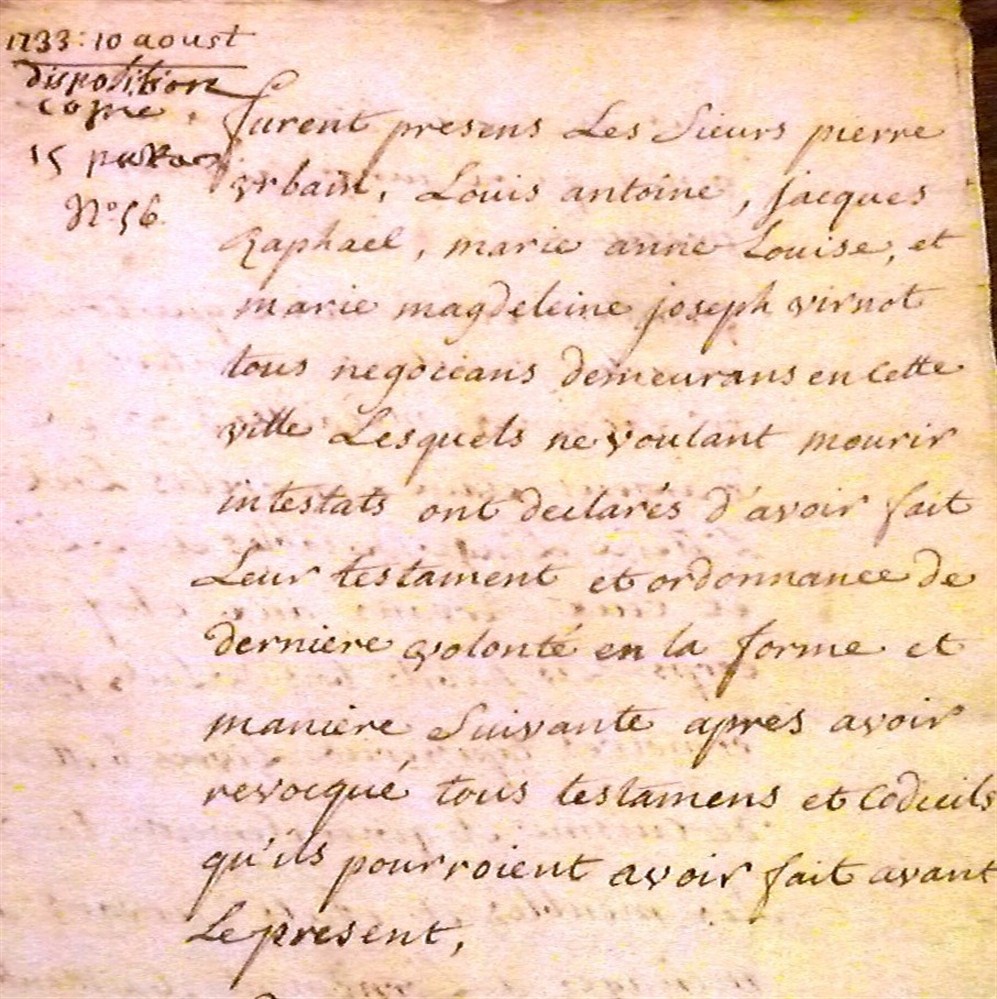 1733: 10 aoust
disposition
copie.
15
N° 56.
furent presens Les Sieurs pierre
urbain, Louis antoine, jacques
Raphael, marie anne Louise, et
marie magdeleine joseph virnot
tous negocians demeurans en cette
ville Lesquels ne voulant mourir
intestats ont declarés d'avoir fait
Leur testament et ordonnance de
derniere volonté en la forme et
maniere Suivante apres avoir
revocqué tous testamens et Codicils
qu'ils pourroient avoir fait avant
Le present,